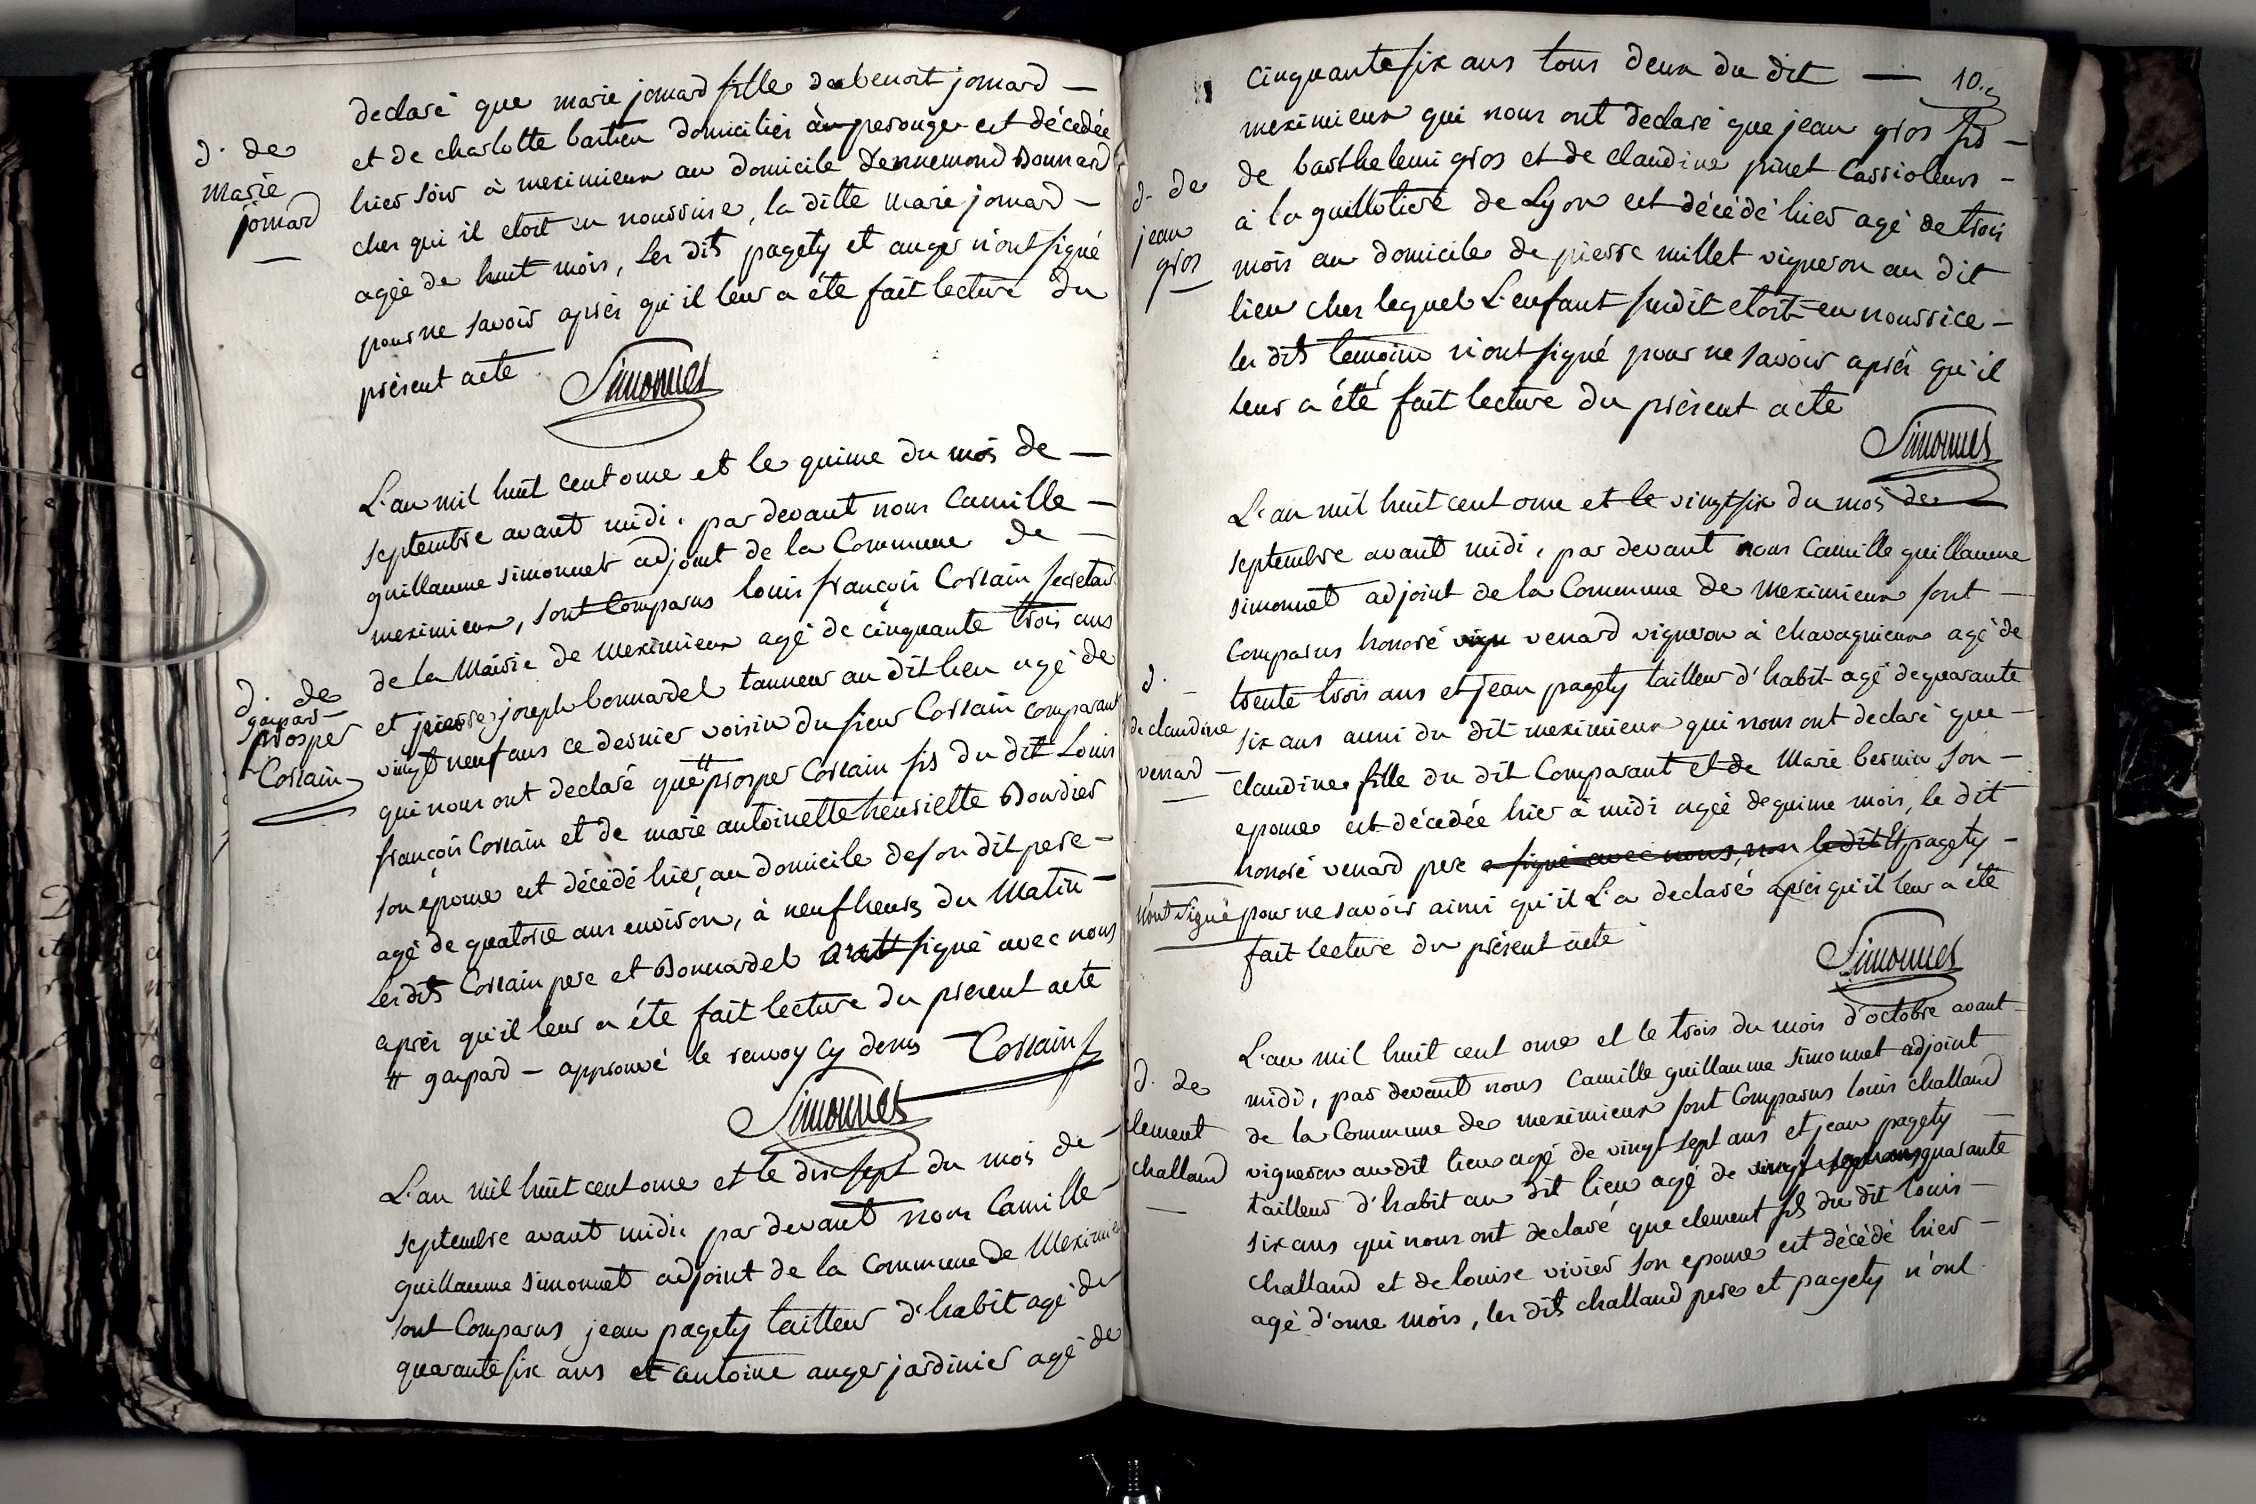 declaré que marie jomard fille de benoit jomard —
et de charlotte bartien domiciliés à perouge est décedée
d. de
marie
jomard
hier soir à meximieux au domicile d'ennemond Bonnard
chez qui il etoit en nourrice, la ditte marie jomard —
agée de huit mois, les dits pagety et auger n'ont signé
pour ne savoir après qu'il leur a éte fait lecture du
présent acte. Simonnet
L'an mil huit cent onze et le quinze du mois de —
septembre avant midi. par devant nous Camille —
guillaume simonnet adjoint de la Commune de —
meximieux, sont Comparus louis françois Corsain secretaire
de la Mairie de Meximieux agé de cinquante trois ans
d. de
gaspard
prosper
Corsain
et pierre joseph bonnardel tanneur au dit lieu agé de
vingt neuf ans ce dernier voisin du sieur Corsain comparant
qui nous ont declaré que # prosper Corsain fils du dit Louis
françois Corsain et de marie antoinette henriette Bourdier
son épouse est décédé hier, au domicile de son dit pere —
agé de quatorze ans environ, à neuf heures du Matin —
Les dits Corsain pere et Bonnardel ont signé avec nous
après qu'il leur a éte fait lecture du present acte
# gaspard — approuvé le renvoy cy dessus Corsain
Simonnet
L'an mil huit cent onze et le dix sept du mois de —
septembre avant midi. par devant nous Camille —
guillaume simonnet adjoint de la Commune de Meximieux
sont Comparus jean pagety tailleur d'habit agé de
quarante six ans et antoine auger jardinier agé de
10.e
cinquante six ans tous deux du dit —
meximieux qui nous ont declaré que jean gros fils —
d. de
jean
gros
de barthelemi gros et de claudine pinet Carrioleurs —
à la guillotiere de Lyon est décédé hier agé de trois
mois au domicile de pierre millet vigneron au dit
lieu chez lequel L'enfant sudit etoit en nourrice —
les dits temoins n'ont signé pour ne savoir après qu'il
leur a été fait lecture du présent acte
Simonnet
L'an mil huit cent onze et le vingt six du mois de —
septembre avant midi, par devant nous Camille guillaume
simonnet adjoint de la Commune de Meximieux sont —
Comparus honoré vign venard vigneron à chavagnieux agé de
d. —
de claudine
venard —
trente trois ans et jean pagety tailleur d'habit agé de quarante
six ans aussi du dit meximieux qui nous ont declaré que —
claudine fille du dit Comparant et de Marie bernin son —
epouse est décédée hier à midi agée de quinze mois, le dit
honoré venard pere a signé avec nous, non le dit Et pagety —
N'ont signé pour ne savoir ainsi qu'il L'a declaré après qu'il leur a éte
fait lecture du présent acte
Simonnet
L'an mil huit cent onze et le trois du mois d'octobre avant —
midi, par devant nous Camille guillaume simonnet adjoint
d. de
clement
challand
de la Commune de meximieux sont Comparus louis challand
vigneron au dit lieu agé de vingt sept ans et jean pagety —
tailleur d'habit au dit lieu agé de vingt sept ans quarante
six ans qui nous ont declaré que clement fils du dit louis —
challand et de louise vivier son epouse est décédé hier —
agé d'onze mois, les dits challand pere et pagety n'ont